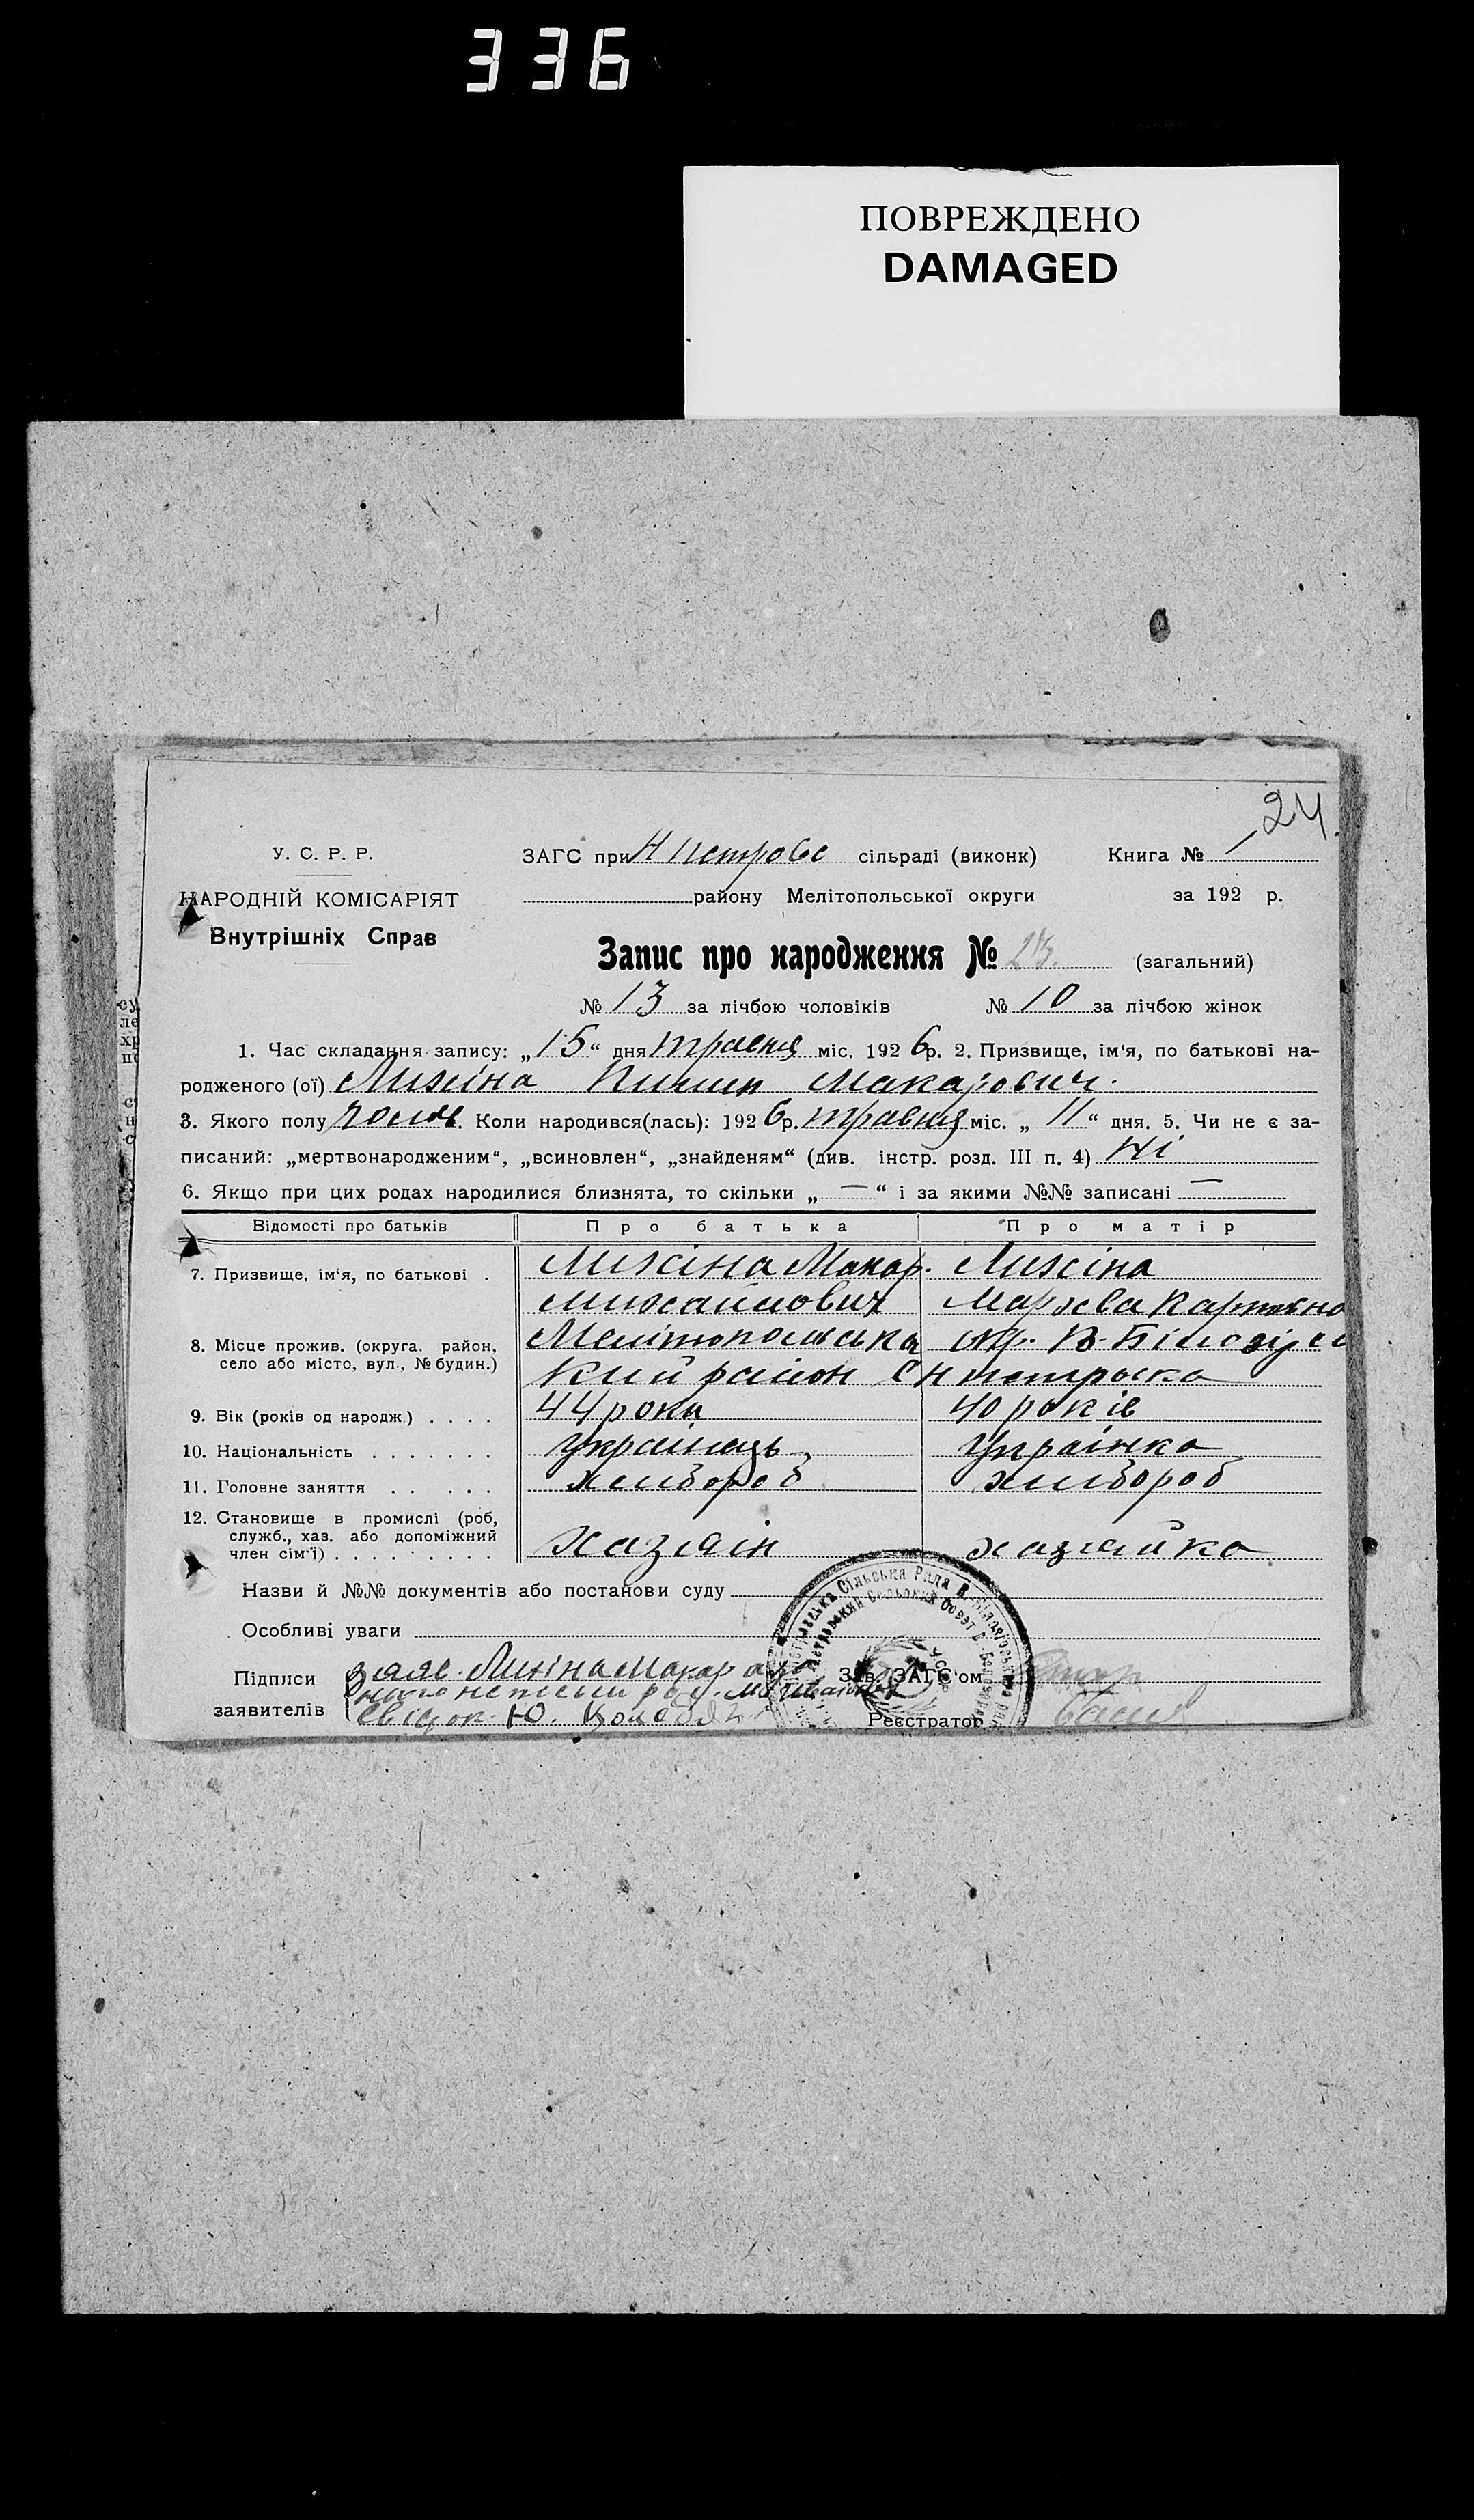 336
ПОВРЕЖДЕНО
DAMAGED
24
У. С. Р. Р. ЗАГС при Н петрове сільраді (виконк) Книга № 1
НАРОДНІЙ КОМІСАРІЯТ району Мелітопольської округи за 192 р.
Внутрішніх Справ
Запис про народження № 23. (загальний)
№ 13 за лічбою чоловіків № 10 за лічбою жінок
1. Час складання запису: „15“ дня травня міс. 1926р. 2. Призвище, ім‘я, по батькові на-
родженого (ої) Макарович.
3. Якого полу чолов. Коли народився(лась): 1926р. травня міс. „11“ дня. 5. Чи не є за-
писаний: „мертвонародженим“, „всиновлен“, „знайденям“ (див. інстр. розд. III п. 4) Ні
6. Якщо при цих родах народилися близнята, то скільки „—“ і за якими №№ записані —
Відомості про батьків Про батька Про матір
7. Призвище, ім‘я, по батькові . Макар.
Михайлович
8. Місце прожив. (округа, район, Мелітопольська окр. В-Білозірс
село або місто, вул., № будин.) кий район с Н петрівка
9. Вік (років од народж.) . . . . 44 роки 40 років
10. Національність . . . . . . . українець українка
11. Головне заняття . . . . . хлібороб хлібороб
12. Становище в промислі (роб,
служб., хаз. або допоміжний
член сім‘ї) . . . . . . . . . хазяїн хазяйка
Назви й №№ документів або постанови суду
Особливі уваги
Підписи заяв. Макар Зав. ЗАГС‘ом
заявителів Свідок Ю. Реєстратор